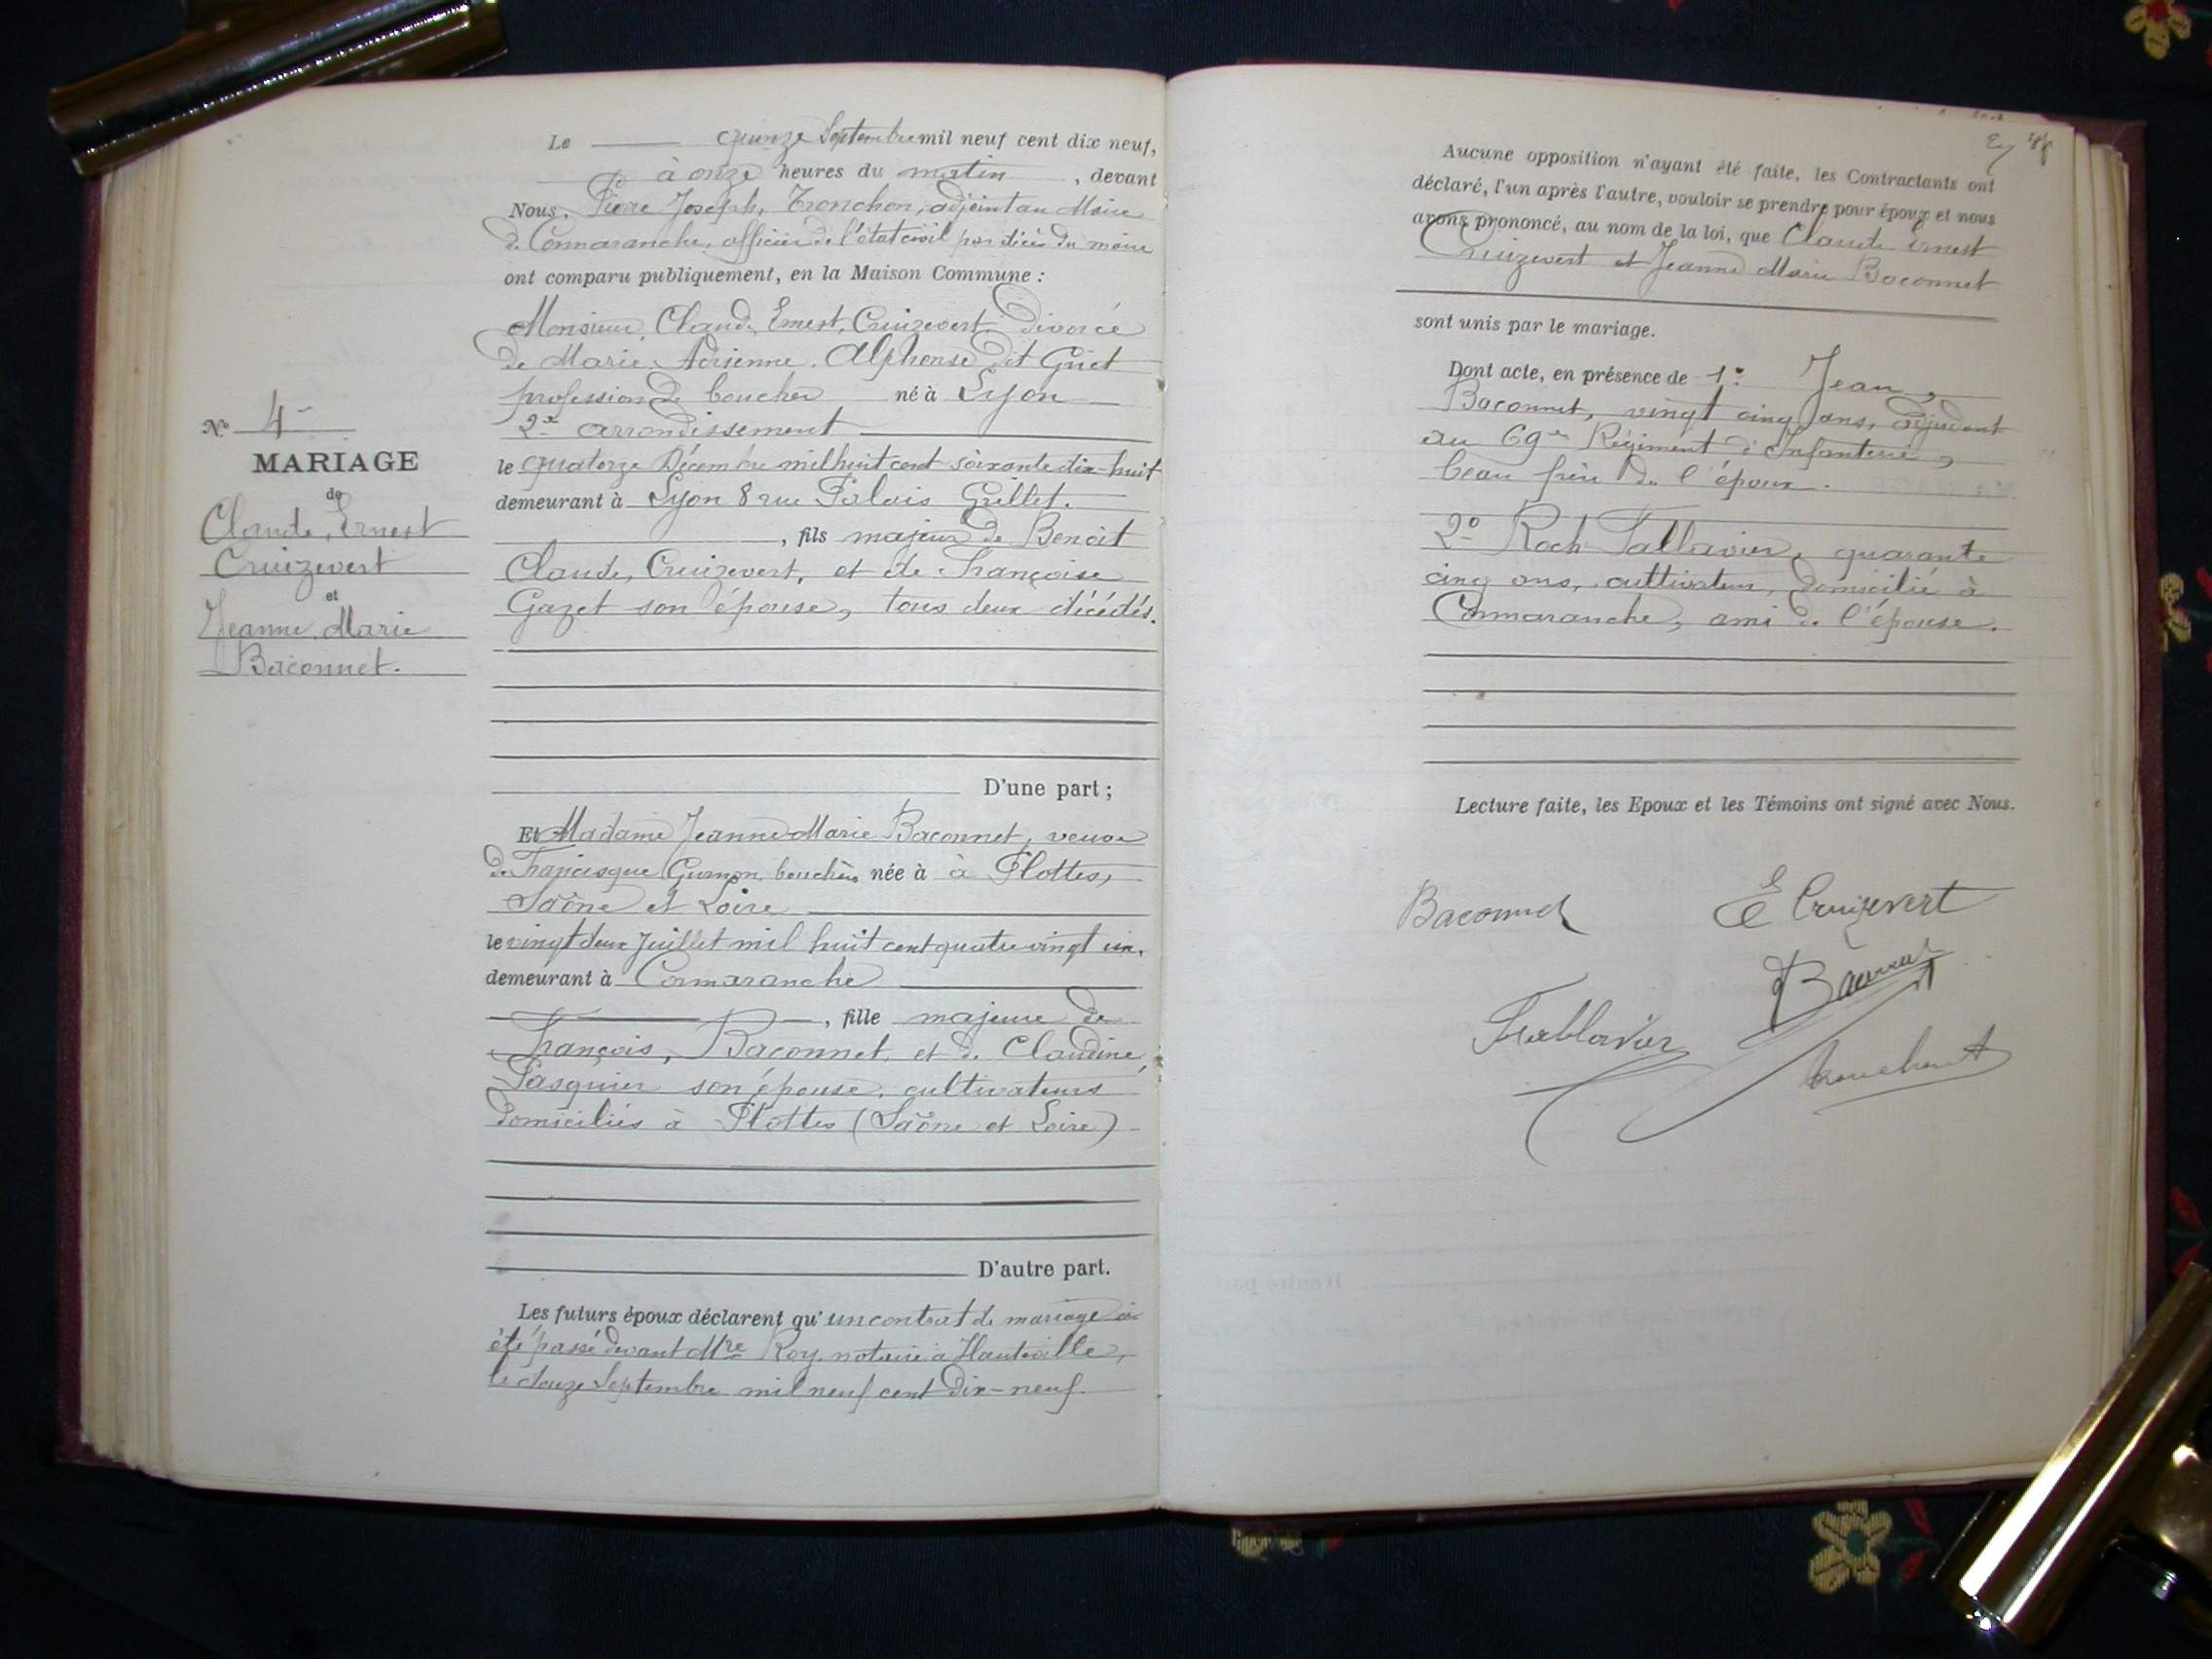 Le quinze Septembre mil neuf cent dix neuf,
à onze heures du matin, devant
Nous, Pierre Joseph, Tronchon, adjoint au Maire
de Cormaranche, officier de l'état civil par décès du maire
ont comparu publiquement, en la Maison Commune :
Monsieur, Claude Ernest, Cruizevert, divorcé
de Marie Adrienne. Alphonse dit Griet
profession de boucher né à Lyon
2e arrondissement
le quatorze Décembre mil huit cent soixante dix-huit
demeurant à Lyon 8 rue Palais Grillet.
, fils majeur de Benoit
Claude, Cruizevert, et de Françoise
Gazet son épouse, tous deux décédés.
D'une part ;
Nº 4
MARIAGE
de
Claude, Ernest
Cruizevert
et
Jeanne, Marie
Baconnet.
Et Madame Jeanne Marie Baconnet, veuve
de Francisque bouchère née à à Plottes,
Saône et Loire
le vingt deux Juillet mil huit cent quatre vingt un,
demeurant à Cormaranche
, fille majeure de
François, Baconnet, et de Claudine,
Pasquier son épouse, cultivateurs
domiciliés à Plottes (Saône et Loire)
D'autre part.
Les futurs époux déclarent qu'un contrat de mariage a
été passé devant Mre Roy, notaire à Hauteville,
le douze Septembre mil neuf cent dix-neuf
Aucune opposition n'ayant été faite, les Contractants ont
déclaré, l'un après l'autre, vouloir se prendre pour époux et nous
avons prononcé, au nom de la loi, que Claude Ernest
Cruizevert et Jeanne Marie Baconnet
sont unis par le mariage.
Dont acte, en présence de 1º: Jean,
Baconnet, vingt cinq ans, adjudant
au 69e Régiment d'Infanterie,
beau frère de l'époux.
2º Roch Tallavier, quarante
cinq ans, cultivateur, domicilié à
Cormaranche, ami de l'épouse.
Lecture faite, les Epoux et les Témoins ont signé avec Nous.
Baconnet E Cruizevert